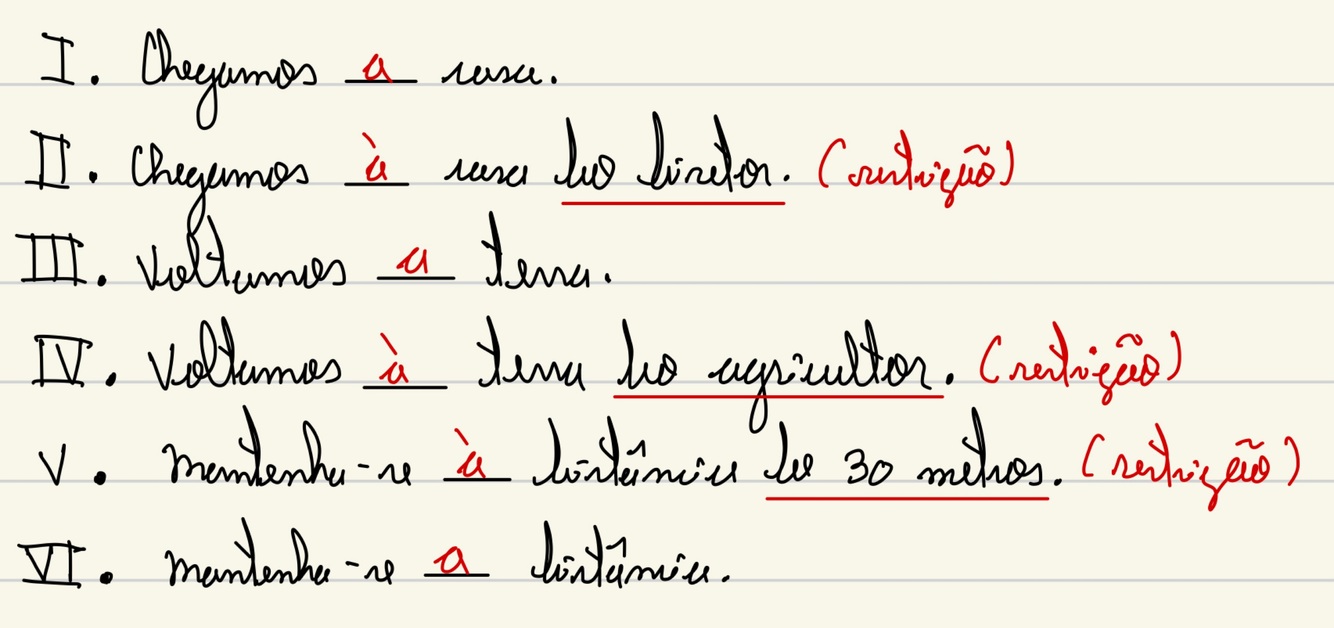 I. Chegamos a casa.
II. Chegamos à casa do diretor. (restrição)
III. Voltamos a terra.
IV. Voltamos à terra do agricultor. (restrição)
V. mantenha-se à distância de 30 metros. (restrição)
VI. mantenha-se a distância.